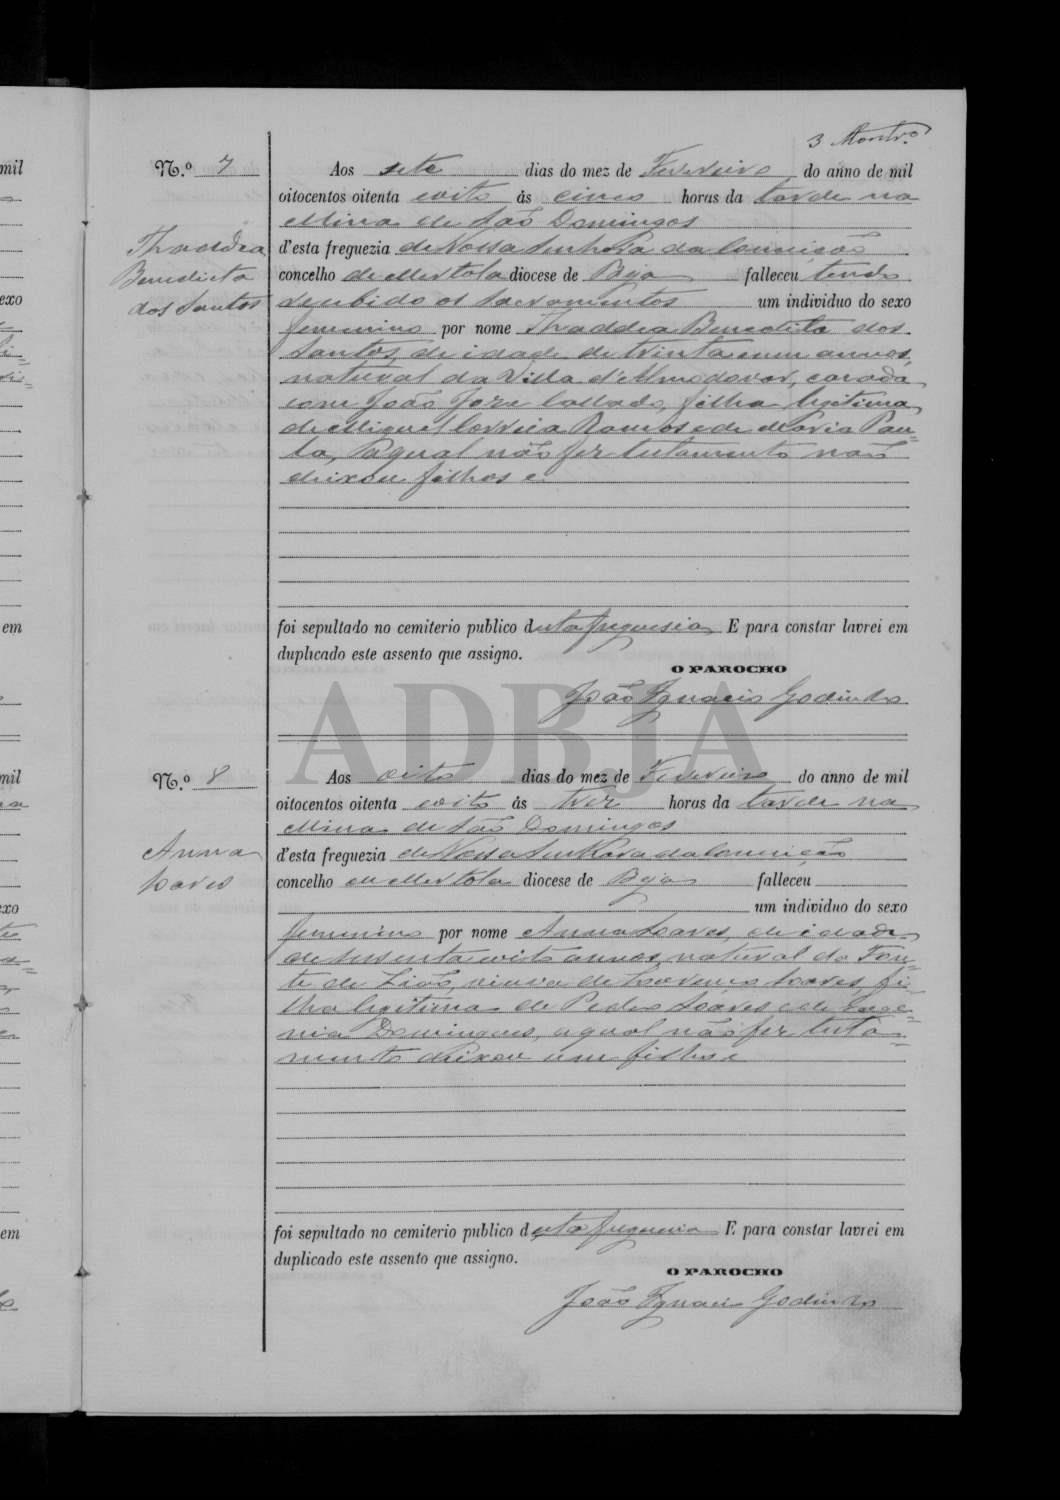 3
N.º 7
Aos sete dias do mez de Fevereiro do anno de mil
oitocentos oitenta e oito ás cinco horas da tarde na
Mina de São Domingos
Thaddea
Benedicta
dos Santos
d'esta freguezia de Nossa Senhora da Conceição
concelho de Mertola diocese de Beja falleceu tendo
recebido os Sacramentos um individuo do sexo
femenino por nome Thaddea Benedicta dos
Santos, de idade de trinta e um annos,
natural da Villa d'Almodovar, casada
com João Joze Collado, filha legitima
de Miguel Correia Ramos e de Maria Pau-
la, a qual não fez testamento não
deixou filhos e
foi sepultado no cemiterio publico desta freguesia E para constar lavrei em
duplicado este assento que assigno.
O PAROCHO
João Ignacio Godinho
ADBJA
N.º 8
Aos oito dias do mez de Fevereiro do anno de mil
oitocentos oitenta e oito ás trez horas da tarde na
Mina de São Domingos
Anna
Soares
d'esta freguezia de Nossa Senhora da Conceição
concelho de Mertola diocese de Beja falleceu
um individuo do sexo
femenino por nome Anna Soares, de idade
de sessenta e oito annos, natural do Fon-
te de Lião, viuva de Lourenço Soares, fi-
lha legitima de Pedro Soares e de Euge-
nia Domingues, a qual não fez testa-
mento deixou um filho e
foi sepultado no cemiterio publico desta freguesia E para constar lavrei em
duplicado este assento que assigno.
O PAROCHO
João Ignacio Godinho
mil
exo
em
mil
exo
em